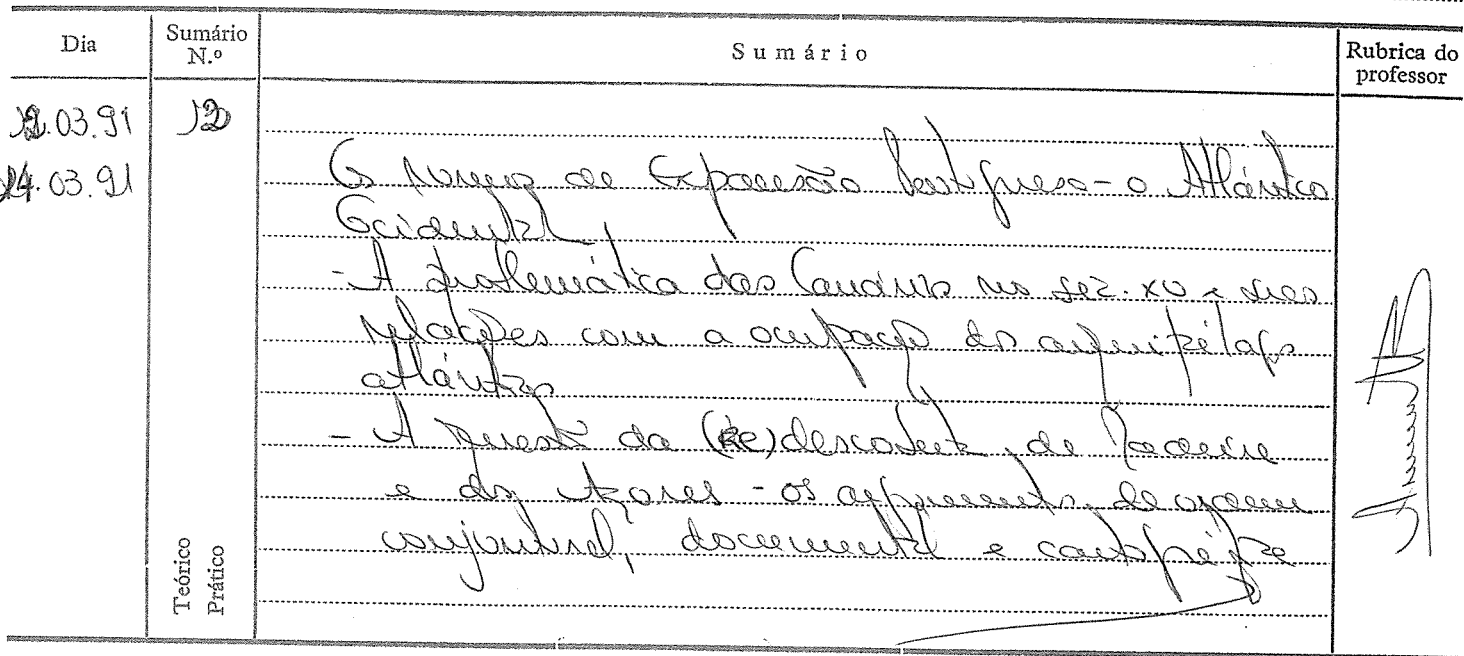 Dia
Sumário N.º
Sumário
Rubrica do professor
12.03.91
12
14.03.91
Os rumos da Expansão Portuguesa - o Atlântico
Ocidental
- A problemática das Canárias no séc. XV e suas
relações com a ocupação dos arquipélagos
atlânticos
- A questão da (re)descoberta da Madeira
e dos Açores - os argumentos de ordem
conjuntural, documental e cartográfica
Teórico
Prático